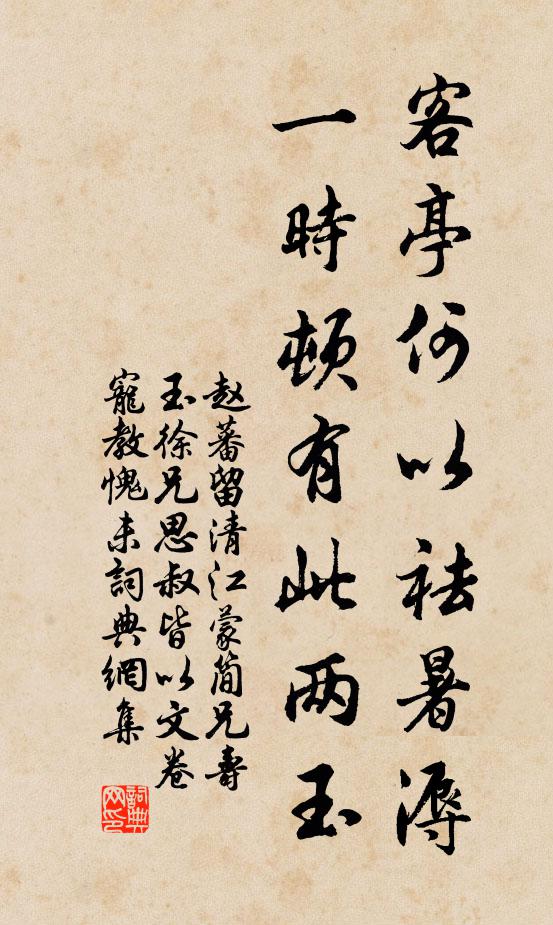 客亭何以祛暑溽
一時頓有此两玉
赵蕃留清江蒙簡兄壽
玉徐兄思叔皆以文卷
寵教愧未詞典網集
詞典網印